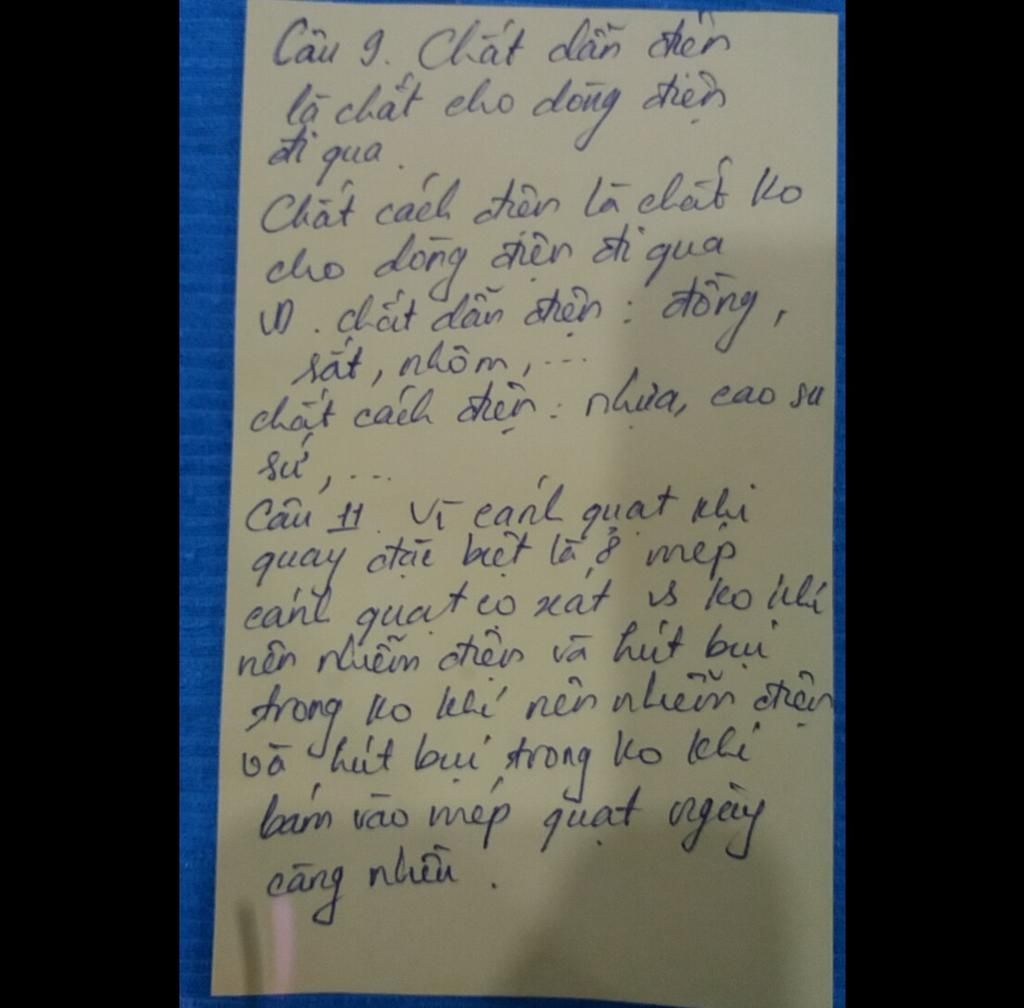 Câu 9. Chất dẫn điện
là chất cho dòng điện
đi qua.
Chất cách điện là chất ko
cho dòng điện đi qua
VD. chất dẫn điện: đồng,
sắt, nhôm, ...
chất cách điện: nhựa, cao su
sứ, ...
Câu 11. Vì cánh quạt khi
quay đặc biệt là ở mép
cánh quạt cọ xát vs ko khí
nên nhiễm điện và hút bụi
trong ko khí nên nhiễm điện
và hút bụi trong ko khí
bám vào mép quạt ngày
càng nhiều.